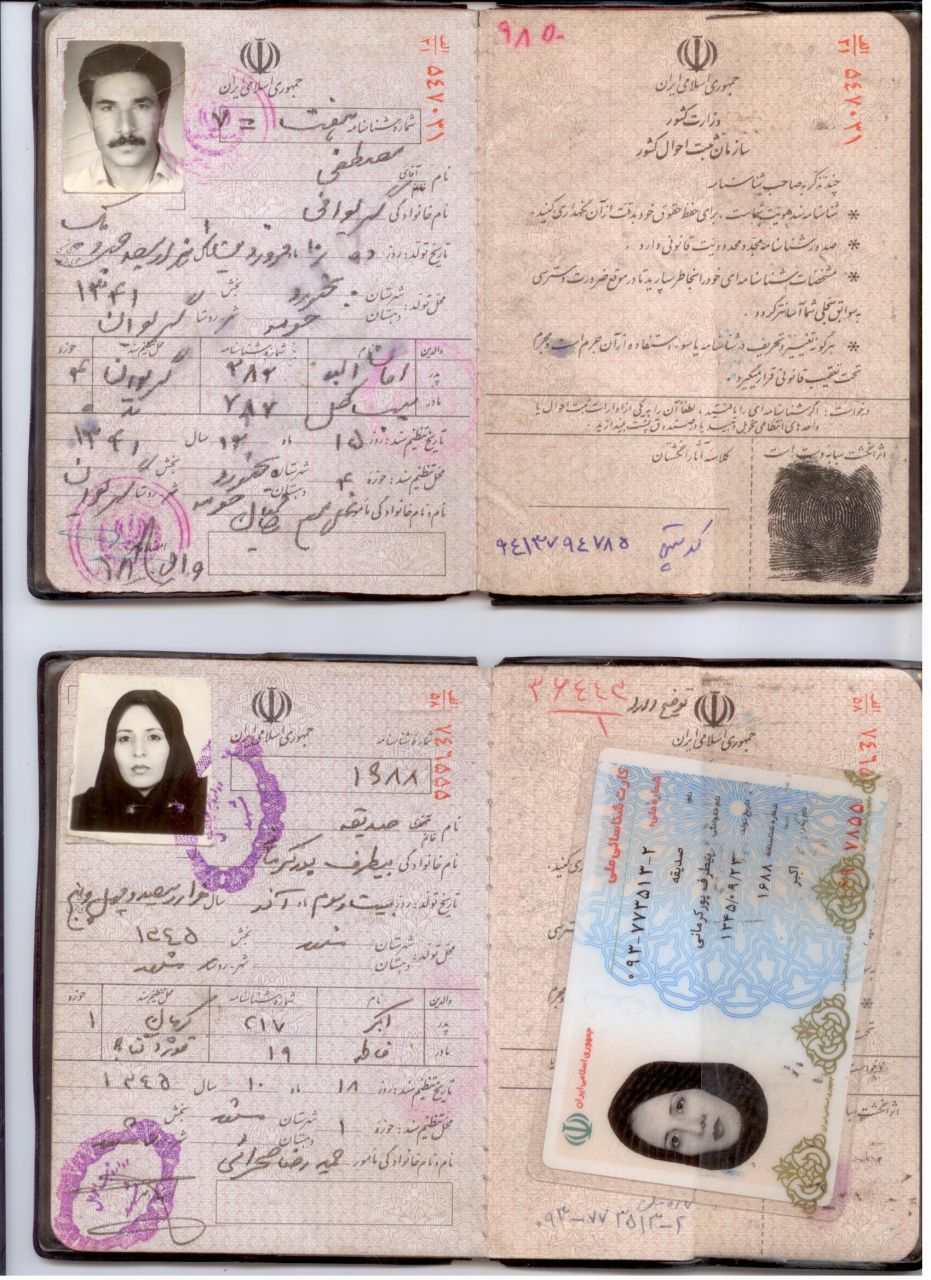 جمهوری اسلامی ایران
الف ۲۱ ۵۴۷۰۳۱
شماره شناسنامه هفت = ۷
نام آقای خانم مصطفی
نام خانوادگی گریوانی
تاریخ تولد: روز ۱۰ ماه فروردین سال هزار سیصد چهل و یک
۱۳۴۱
محل تولد: شهرستان بجنورد بخش
دهستان حومه شهر-روستا گریوان
والدین نام شماره شناسنامه محل تنظیم سند حوزه
پدر ۳۸۲ گریوان ۴
مادر ۷۸۷
تاریخ تنظیم سند: روز ۱۵ ماه سال ۱۳۴۱
محل تنظیم سند: حوزه ۴ شهرستان بجنورد بخش
دهستان حومه شهر-روستا گریوان
نام و نام خانوادگی مأمور
۹۸۵۰
الف ۲۱ ۵۴۷۰۳۱
جمهوری اسلامی ایران
وزارت کشور
سازمان ثبت احوال کشور
چند تذکر به صاحب شناسنامه
* شناسنامه سند هویت شماست، برای حفظ حقوق خود بدقت از آن نگهداری کنید.
* صدور شناسنامه مجدد محدودیت قانونی دارد.
* مشخصات شناسنامه ای خود را بخاطر بسپارید تا در موقع ضرورت دسترسی
به سوابق سجلی شما آسانتر گردد.
* هرگونه تغییر و تحریف در شناسنامه یا سوء استفاده از آن جرم است و مجرم
تحت تعقیب قانونی قرار میگیرد.
درخواست: اگر شناسنامه ای را یافتید، لطفاً آن را به یکی از ادارات ثبت احوال یا
واحدهای انتظامی تحویل دهید یا در صندوق پست بیندازید.
اثر انگشت سبابه دست راست
کلاسه آثار انگشتان
کد پستی ۹۴۱۳۷۹۴۷۸۵
جمهوری اسلامی ایران
الف ۵۸ ۷۴۶۵۵۵
شماره شناسنامه
۱۶۸۸
نام آقای خانم صدیقه
نام خانوادگی بیطرف پورکرمانی
تاریخ تولد: روز بیست و سوم ماه آذر سال هزار و سیصد و چهل و پنج
۱۳۴۵
محل تولد: شهرستان مشهد بخش
دهستان شهر-روستا مشهد
والدین نام شماره شناسنامه محل تنظیم سند حوزه
پدر اکبر ۲۱۷ کرمان ۱
مادر فاطمه ۱۹
تاریخ تنظیم سند: روز ۱۸ ماه ۱۰ سال ۱۳۴۵
محل تنظیم سند: حوزه ۱ شهرستان مشهد بخش
دهستان
نام و نام خانوادگی مأمور حمید رضا صحرائی
توضیح دارد
جمهوری اسلامی ایران
کارت شناسائی ملی
شماره ملی: ۰۹۳-۷۷۳۵۱۳-۲
نام صدیقه
نام خانوادگی بیطرف پورکرمانی
تاریخ تولد ۱۳۴۵/۰۹/۲۳
شماره شناسنامه ۱۶۸۸
نام پدر اکبر
جمهوری اسلامی ایران
۰۹۳-۷۷۳۵۱۳-۲